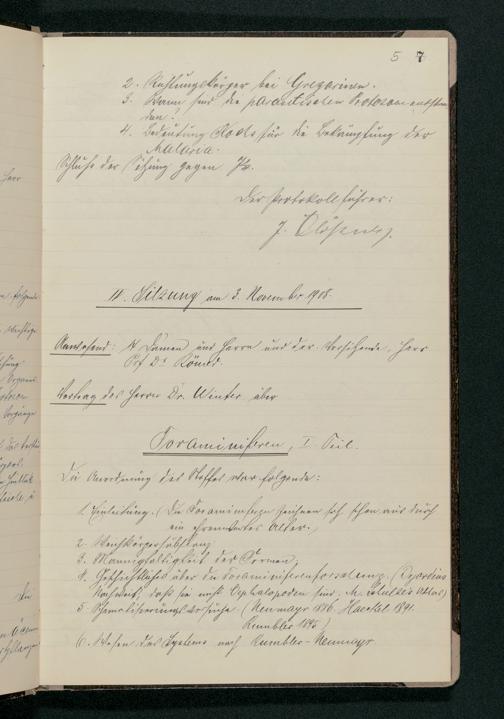 5 7
2. Richtungskörper bei Gregarinen.
3. Wann sind die parasitischen Protozoen entstan-
den?
4. Bedeutung Kochs für die Bekämpfung der
Malaria.
Schluß der Sitzung gegen
Der Protokollführer:
J.
II. Sitzung am 3. November 1908.
Anwesend: Damen und Herren und der Vorsitzende, Herr
Prof Dr Römer.
Vortrag des Herrn Dr. Winter über
Foraminiferen, I. Teil.
Die Anordnung des Stoffes war folgende:
1. Einleitung. (Die Foraminiferen zeichnen sich schon aus durch
ein ehrenwertes Alter.)
2. Weichkörpersubstanz
3. Mannigfaltigkeit der Formen.
4. Geschichtliches über die Foraminiferenforschung. (Dujardins
Nachweis, daß sie nicht Cephalopoden sind,
5. Schematisierungsversuche (Neumayr 1886. Haeckel 1891.
Rhumbler 1895)
6. Wesen des Systems nach Rhumbler-Neumayr